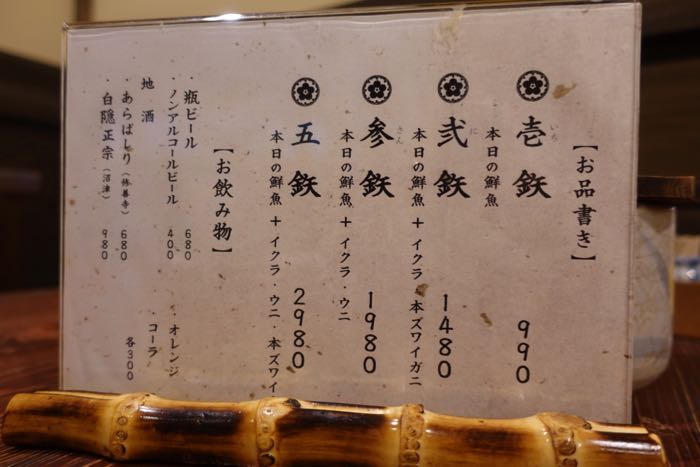 【お品書き】
壱鉄
いち
990
本日の鮮魚
弐鉄
に
1480
本日の鮮魚 + イクラ・本ズワイガニ
参鉄
さん
1980
本日の鮮魚 + イクラ・ウニ
五鉄
2980
本日の鮮魚 + イクラ・ウニ・本ズワイ
【お飲み物】
・瓶ビール 680
・ノンアルコールビール 400
地酒
・あらばしり(修善寺) 680
・白隠正宗(沼津) 980
・オレンジ
・コーラ
各300